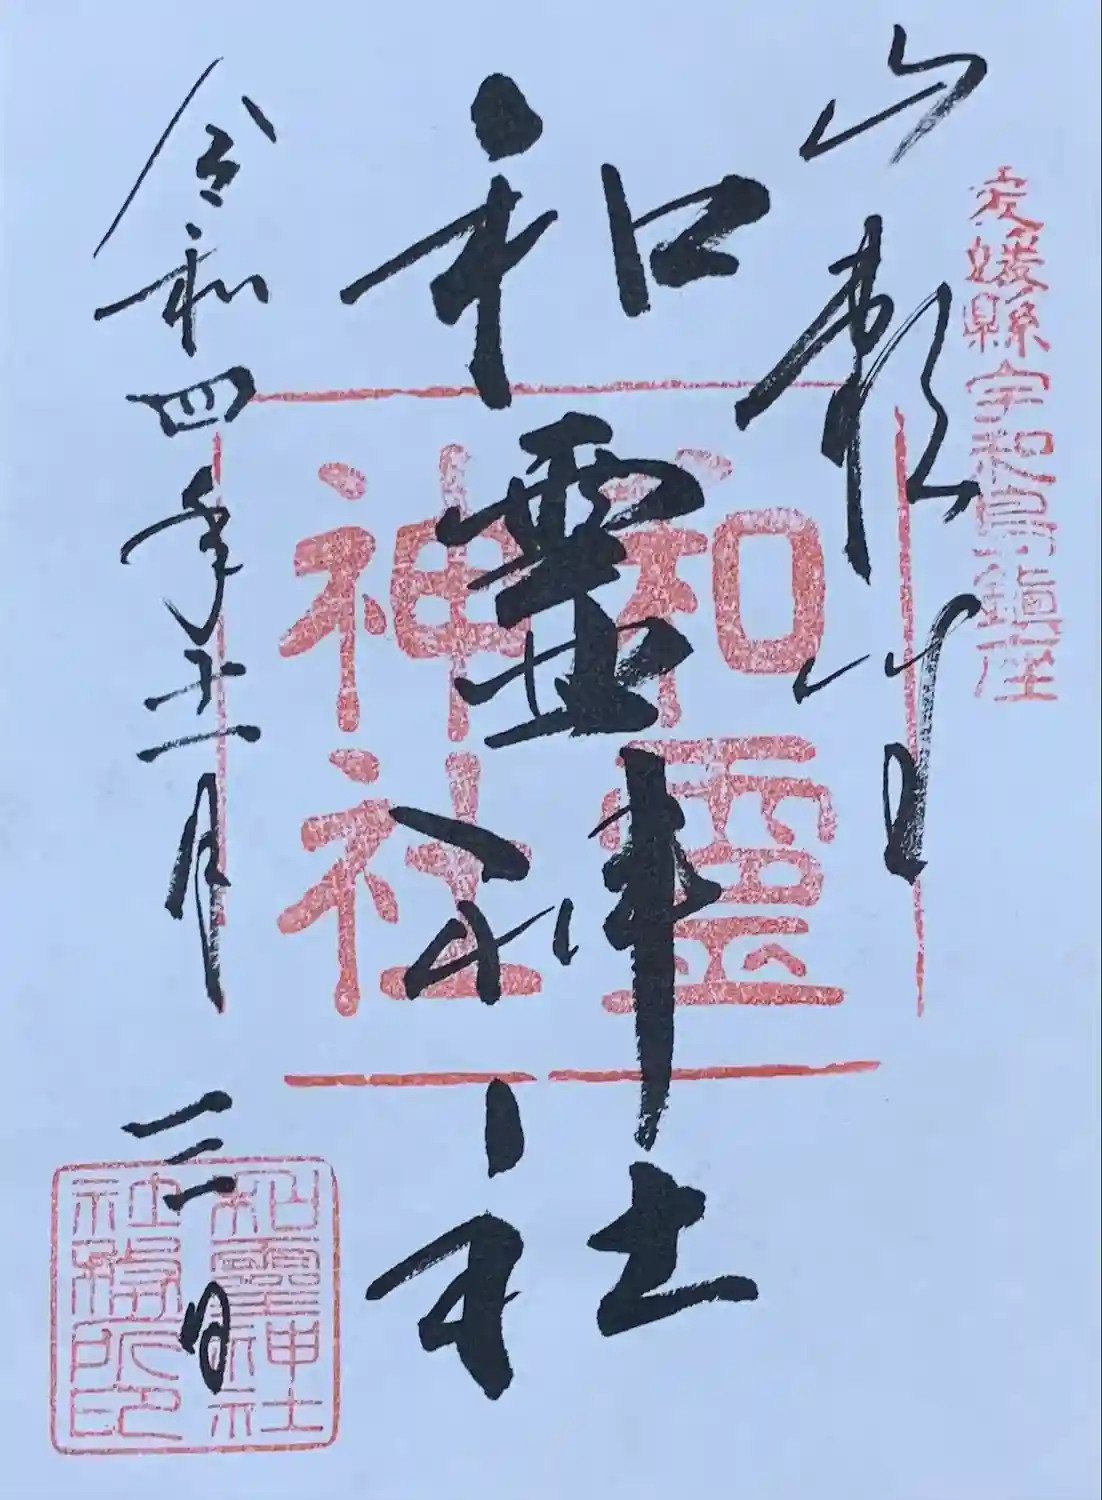 愛媛縣宇和島鎮座
山頼
和靈神社
令和四年十一月三日
和靈
神社
和靈神社
社務所印